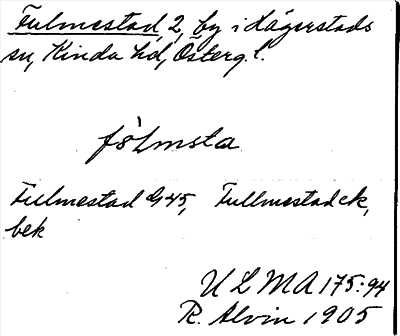 Fulmestad 2, by i Hägerstads
sn, Kinda hd, Österg. l.
fòLmsta
Fulmestad G45, Fullmestad ek,
bek
ULMA 175:94
R. Alvin 1905